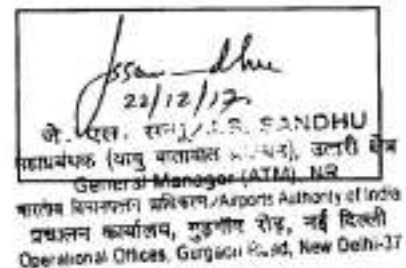 22/12/17.
जे. एस. J.S. SANDHU
महाप्रबंधक (वायु यातायात उत्तरी क्षेत्र
General Manager (ATM), NR
भारतीय विमानपत्तन प्राधिकरण/Airports Authority of India
प्रचालन कार्यालय, गुड़गाँव रोड़, नई दिल्ली
Operational Offices, Gurgaon Road, New Delhi-37